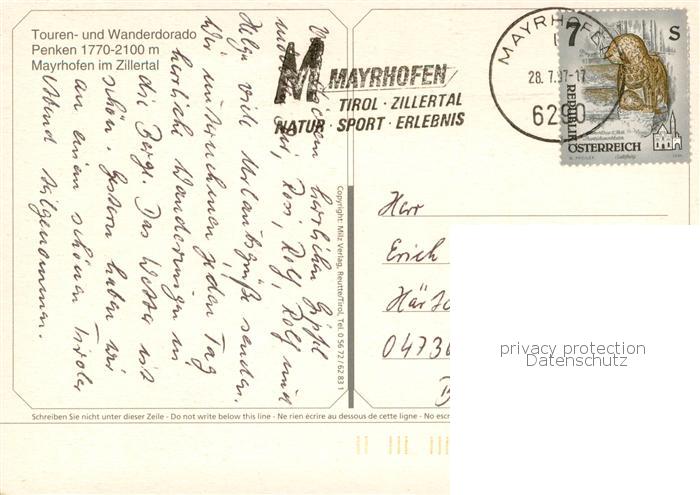 Touren- und Wanderdorado
Penken 1770-2100 m
Mayrhofen im Zillertal
herrlichen Gipfel
Rosi, Rolf, Rolf und
Helga viele Urlaubsgrüße senden.
Wir unternehmen jeden Tag
herrliche Wanderungen in
die Berge. Das Wetter ist
schön. Gestern haben wir
an einem schönen Tiroler
Abend teilgenommen.
M MAYRHOFEN
TIROL · ZILLERTAL
NATUR · SPORT · ERLEBNIS
MAYRHOFEN
28. 7. 97-17
6290
7 S
REPUBLIK
ÖSTERREICH
Copyright: Milz Verlag, Reutte/Tirol, Tel. 0 56 72 / 62 83 1
Herr
Erich
04736
privacy protection
Datenschutz
Schreiben Sie nicht unter dieser Zeile - Do not write below this line - Ne rien écrire au dessous de cette ligne - No escr